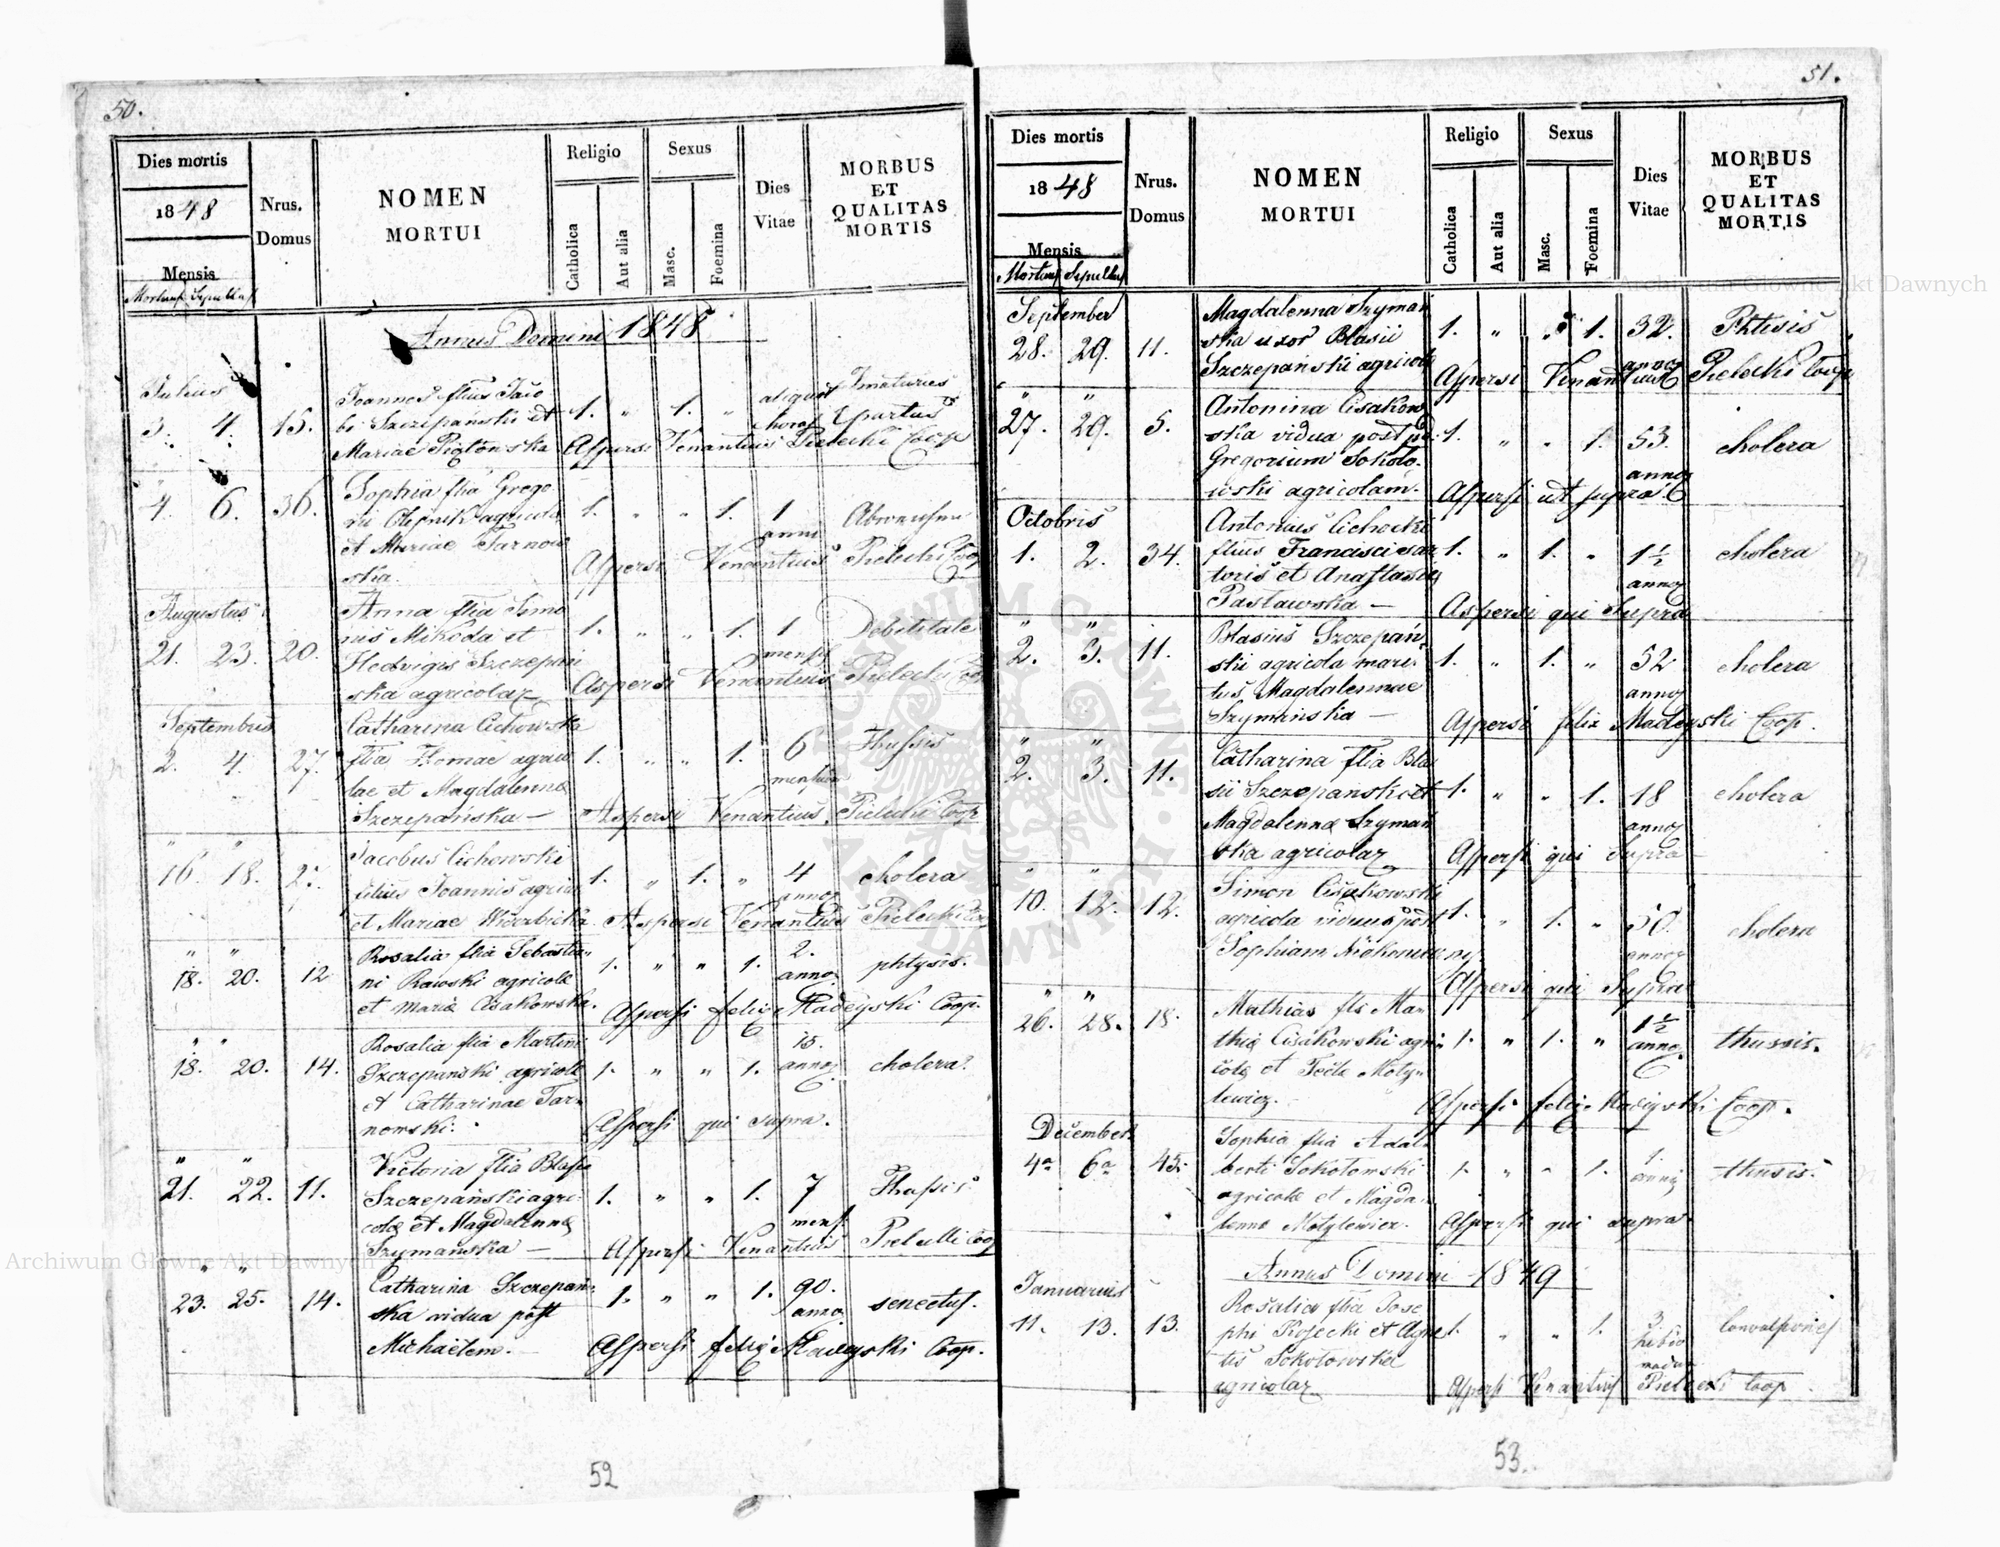 50.
Dies mortis
1848
Mensis
Mortuus Sepultus
Nrus.
Domus
NOMEN
MORTUI
Religio
Catholica
Aut alia
Sexus
Masc.
Foemina
Dies
Vitae
MORBUS
ET
QUALITAS
MORTIS
Annus Domini 1848
Julius
3. 4. 15.
Joannes filius Jaco
bi Szczepański et
Mariae
1. " 1. " aliquot
horas
Imaturus
partus
Aspersi Venantius Pielecki Coop
4. 6. 36.
Sophia flia Grego
rii Olejnik agricola
et Mariae Tarnow
ska.
1. " " 1. 1
anni
Aspersi Venantius Pielecki Coop
Augustus
21. 23. 20.
Anna flia Simo
nis Mikoda et
Hedvigis Szczepań
ska agricolar
1. " " 1. 1
mensis
Debilitate
Aspersi Venantius Pielecki Coop
Septembris
2. 4. 27.
Catharina Cichowska
flia Thomae agrico
lae et Magdalenna
Szczepańska —
1. " " 1. 6
mensium
Thussis
Aspersi Venantius Pielecki Coop
" "
16. 18.
Jacobus Cichowski
filius Joannis agrico
et Mariae Wierzbicka
1. " 1. " 4
annor
cholera
Aspersi Venantius Pielecki Coop
" "
18. 20. 12
Rosalia flia Sebastia-
ni Rawski agricola
et Maria Cisakowska.
1. " " 1. 2.
annor
phtysis.
Aspersi felix Madeyski Coop.
" "
18. 20. 14.
Rosalia flia Martini
Szczepanski agricola
et Catharinae Tar-
nowski.
1. " " 1. 15.
annor
cholera
Aspersi qui supra.
" "
21. 22. 11.
Victoria flia Blasii
Szczepański agri-
cola et Magdalenna
Szymańska —
1. " " 1. 7
mens.
Thussis
Aspersi Venantius Pielecki Coop
" "
23. 25. 14.
Catharina Szczepań-
ska vidua post
Michaelem.
1. " " 1. 90.
annor
senectus.
Aspersi felix Madeyski Coop.
52
51.
Dies mortis
1848
Mensis
Mortuus Sepultus
Nrus.
Domus
NOMEN
MORTUI
Religio
Catholica
Aut alia
Sexus
Masc.
Foemina
Dies
Vitae
MORBUS
ET
QUALITAS
MORTIS
September
28. 29. 11.
Magdalenna Szymań
ska uxor Blasii
Szczepański agricola
1. " 1. 32.
annor
Phtisis
Aspersi Venantius Pielecki Coop
" "
27. 29. 5.
Antonina Cisakow
ska vidua post
Gregorium Sokolo-
wski agricolam.
1. " " 1. 53.
annor
cholera
Aspersi ut supra
Octobris
1. 2. 34.
Antonius Cichocki
filius Francisci sar
toris et Anastasiae
Pasławska —
1. " 1. " 1½
annor
cholera
Aspersi qui Supra
" "
2. 3. 11.
Blasius Szczepań
ski agricola mari-
tus Magdalennae
Szymańska —
1. " 1. " 52
annor
cholera
Aspersi felix Madeyski Coop.
" "
2. 3. 11.
Catharina flia Bla
sii Szczepanski et
Magdalenna Szymań
ska agricolar
1. " " 1. 18
annor
cholera
Aspersi qui Supra
" "
10. 12. 12.
Simon Cisakowski
agricola viduus post
Sophiam
1. " 1. " 50.
annor
cholera
Aspersi qui Supra
" "
26. 28. 18.
Mathias fls Ma-
thia Cisakowski agri-
cola et Tecla Moty-
lewicz.
1. " 1. " 1½
annor
thussis.
Aspersi felix Madeyski Coop.
December
4a 6a 45.
Sophia flia Adal-
berti Sokołowski
agricola et Magda-
lenna Motylewicz.
1. " " 1. 1.
anni
thusis.
Aspersi qui supra
Annus Domini 1849
Januarius
11. 13. 13.
Rosalia flia Jose
phi Rosecki et Agne
tis Sokołowska
agricolar
1. " " 1. 3.
hebdo
madar
Convulsiones
Aspersi Venantius Pielecki Coop
53.
Archiwum Główne Akt Dawnych
Archiwum Główne Akt Dawnych
ARCHIWUM GŁÓWNE AKT DAWNYCH